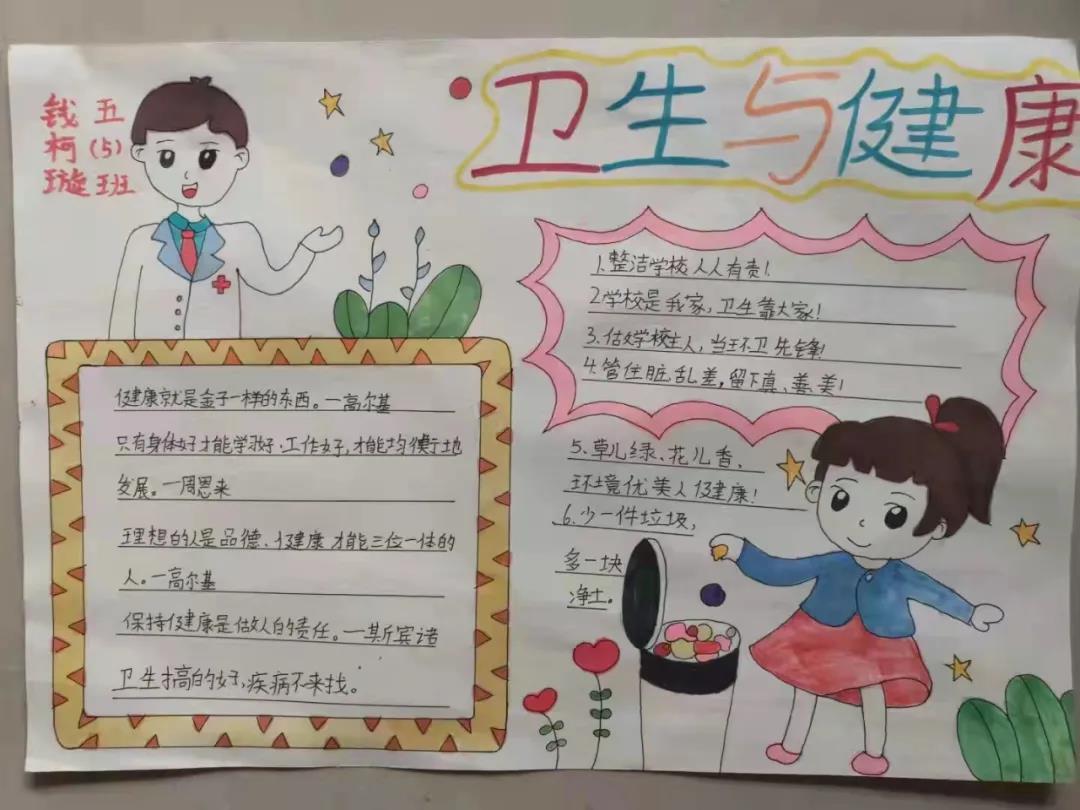 卫生与健康
钱 五
柯 (5)
璇 班
健康就是金子一样的东西。一高尔基
只有身体好才能学习好、工作好,才能均衡地
发展。一周恩来
理想的人是品德、健康才能三位一体的
人。一高尔基
保持健康是做人的责任。一斯宾诺
卫生搞的好,疾病不来找。
1.整洁学校人人有责!
2学校是我家,卫生靠大家!
3.做学校主人,当环卫先锋!
4.管住脏、乱、差,留下真、善、美!
5.草儿绿、花儿香、
环境优美人健康!
6.少一件垃圾,
多一块
净土。